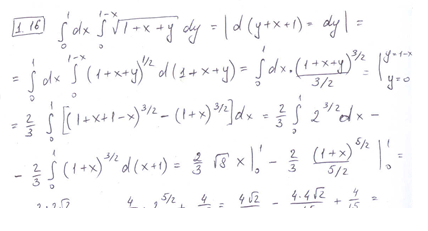 1.16 ∫₀¹ dx ∫₀^{1-x} √(1+x+y) dy = | d(y+x+1) = dy | =
= ∫₀¹ dx ∫₀^{1-x} (1+x+y)^{1/2} d(1+x+y) = ∫₀¹ dx · (1+x+y)^{3/2} / 3/2 = |_{y=0}^{y=1-x}
= 2/3 ∫₀¹ [(1+x+1-x)^{3/2} - (1+x)^{3/2}] dx = 2/3 ∫₀¹ 2^{3/2} dx -
- 2/3 ∫₀¹ (1+x)^{3/2} d(x+1) = 2/3 √8 x |₀¹ - 2/3 (1+x)^{5/2} / 5/2 |₀¹ =